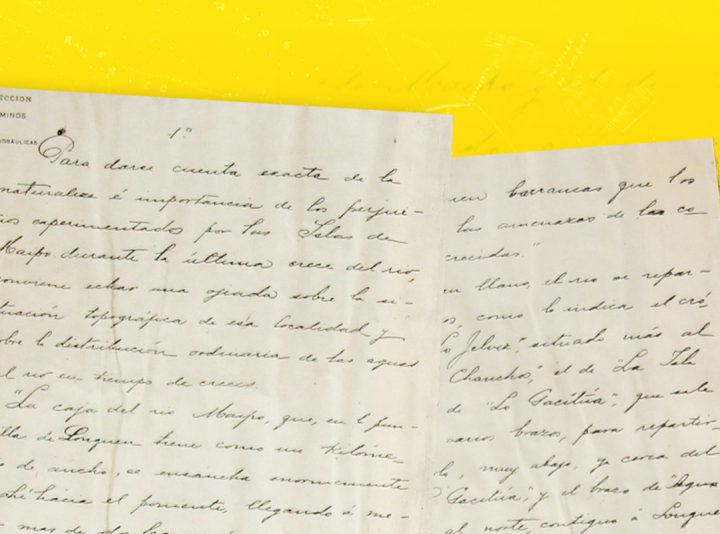 ECCION
MINOS
HIDRÁULICAS
1º
Para darse cuenta exacta de la
naturaleza é importancia de los perjui-
cios esperimentados por las Islas de
Maipo durante la última crece del rio,
conviene echar una ojeada sobre la si-
tuación topográfica de esa localidad y
sobre la distribución ordinaria de las aguas
del rio en tiempo de creces.
"La caja del rio Maipo, que, en l pun-
tilla de Lonquen tiene como un kilóme-
tro de ancho, se ensancha enormemente
hácia el poniente, llegando á me-
mas de dos
barrancas que los
las amenazas de las co-
crecidas."
llano, el rio se repar-
s, como lo indica el cró-
situado más al
Chancho", el de "La Isla
de "Lo Gacitúa", que sale
varios brazos, para repartir-
muy abajo, ya cerca del
Gacitúa", y el brazo de "Aguas
al norte, contiguo á Lonque